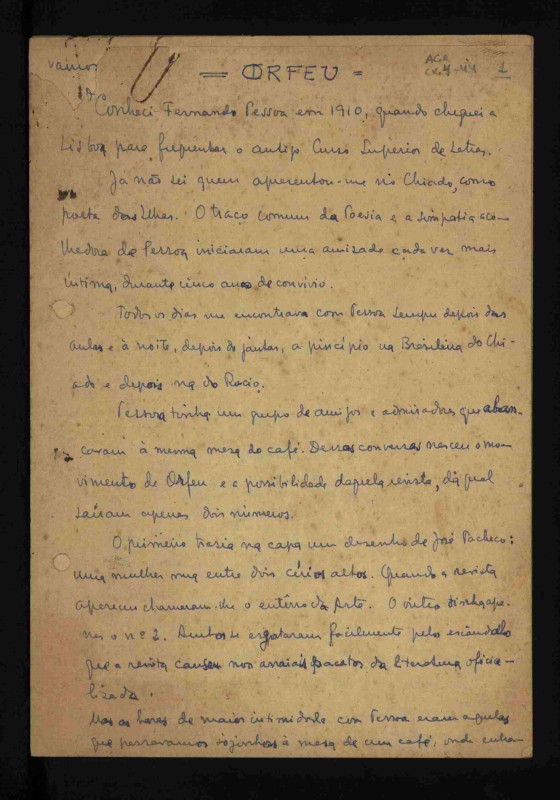 vamos
= ORFEU =
1
Conheci Fernando Pessoa em 1910, quando cheguei a
Lisboa para frequentar o antigo Curso Superior de Letras.
Já não sei quem apresentou-me no Chiado, como
poeta das Ilhas. O traço comum da Poesia e a simpatia aco-
lhedora de Pessoa iniciaram uma amizade cada vez mais
íntima, durante cinco anos de convívio.
Todos os dias me encontrava com Pessoa sempre depois das
aulas e à noite, depois do jantar, a princípio na Brasileira do Chi-
ado e depois na do Rocio.
Pessoa tinha um grupo de amigos e admiradores que aban-
cavam à mesma mesa do café. Dessas conversas nasceu o mo-
vimento de Orfeu e a possibilidade daquela revista, da qual
saíram apenas dois números.
O primeiro trazia na capa um desenho de José Pacheco:
uma mulher nua entre dois círios altos. Quando a revista
apareceu chamaram-lhe o entêrro da Arte. O outro tinha ape-
nas o nº 2. Ambos se esgotaram facilmente pelo escândalo
que a revista causou nos arraiais pacatos da literatura oficia-
lizada.
Mas as horas de maior intimidade com Pessoa eram aquelas
que passavamos sòzinhos à mesa de um café, onde